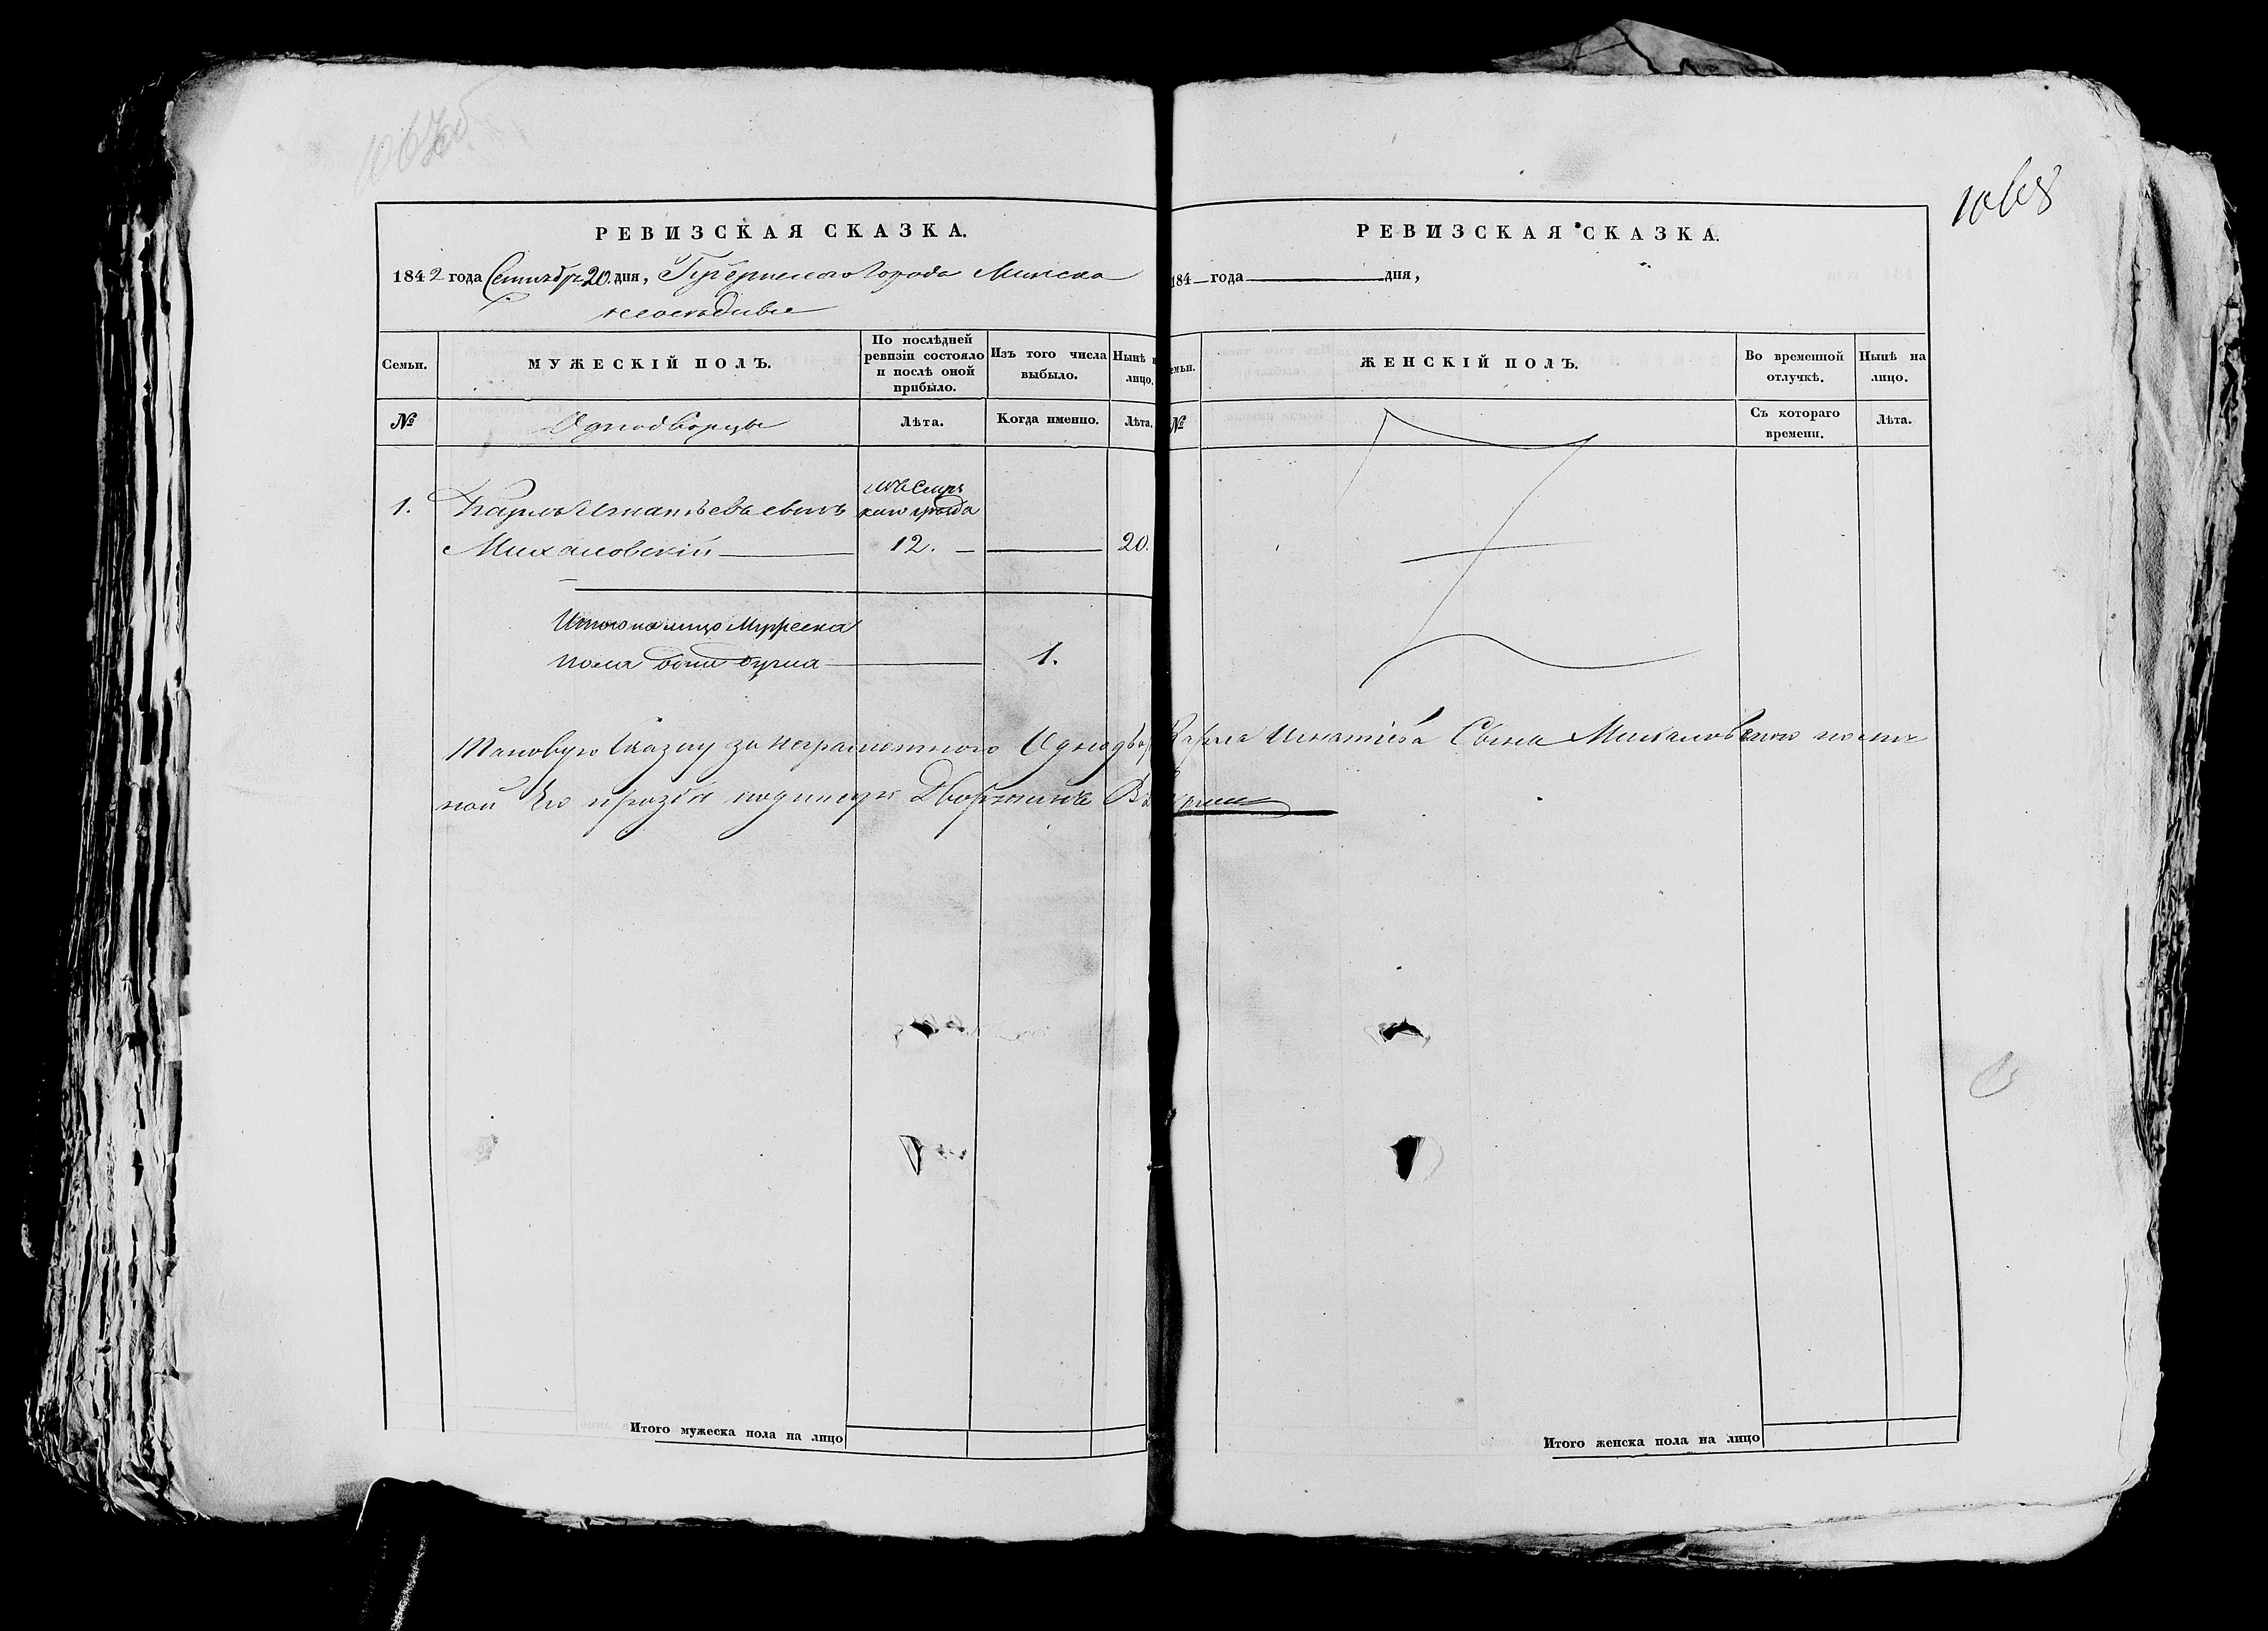 1067об
1068
РЕВИЗСКАЯ СКАЗКА.
1842 года Сентября 20 дня, Губернского Города Минска
неоседлые
Семьи.
МУЖЕСКІЙ ПОЛЪ.
По послѣдней
ревизіи состояло
и послѣ оной
прибыло.
Изъ того числа
выбыло.
Нынѣ н
лицо.
№
Однодворцы
Лѣта.
Когда именно.
Лѣта.
1.
Карлъ Игнатьевъ сынъ
Михаловскій
12.
20.
Итого на лицо Мужеска
пола одна душа
1.
Таковую Сказку за неграмотного Однодвор Карла Игнатіева Сына Михаловского по лич
ной Его прозбѣ подписалъ Дворянинъ
Итого мужеска пола на лицо
РЕВИЗСКАЯ СКАЗКА.
184 года дня,
емьи.
ЖЕНСКІЙ ПОЛЪ.
Во временной
отлучкѣ.
Нынѣ на
лицо.
№
Съ котораго
времени.
Лѣта.
Итого женска пола на лицо